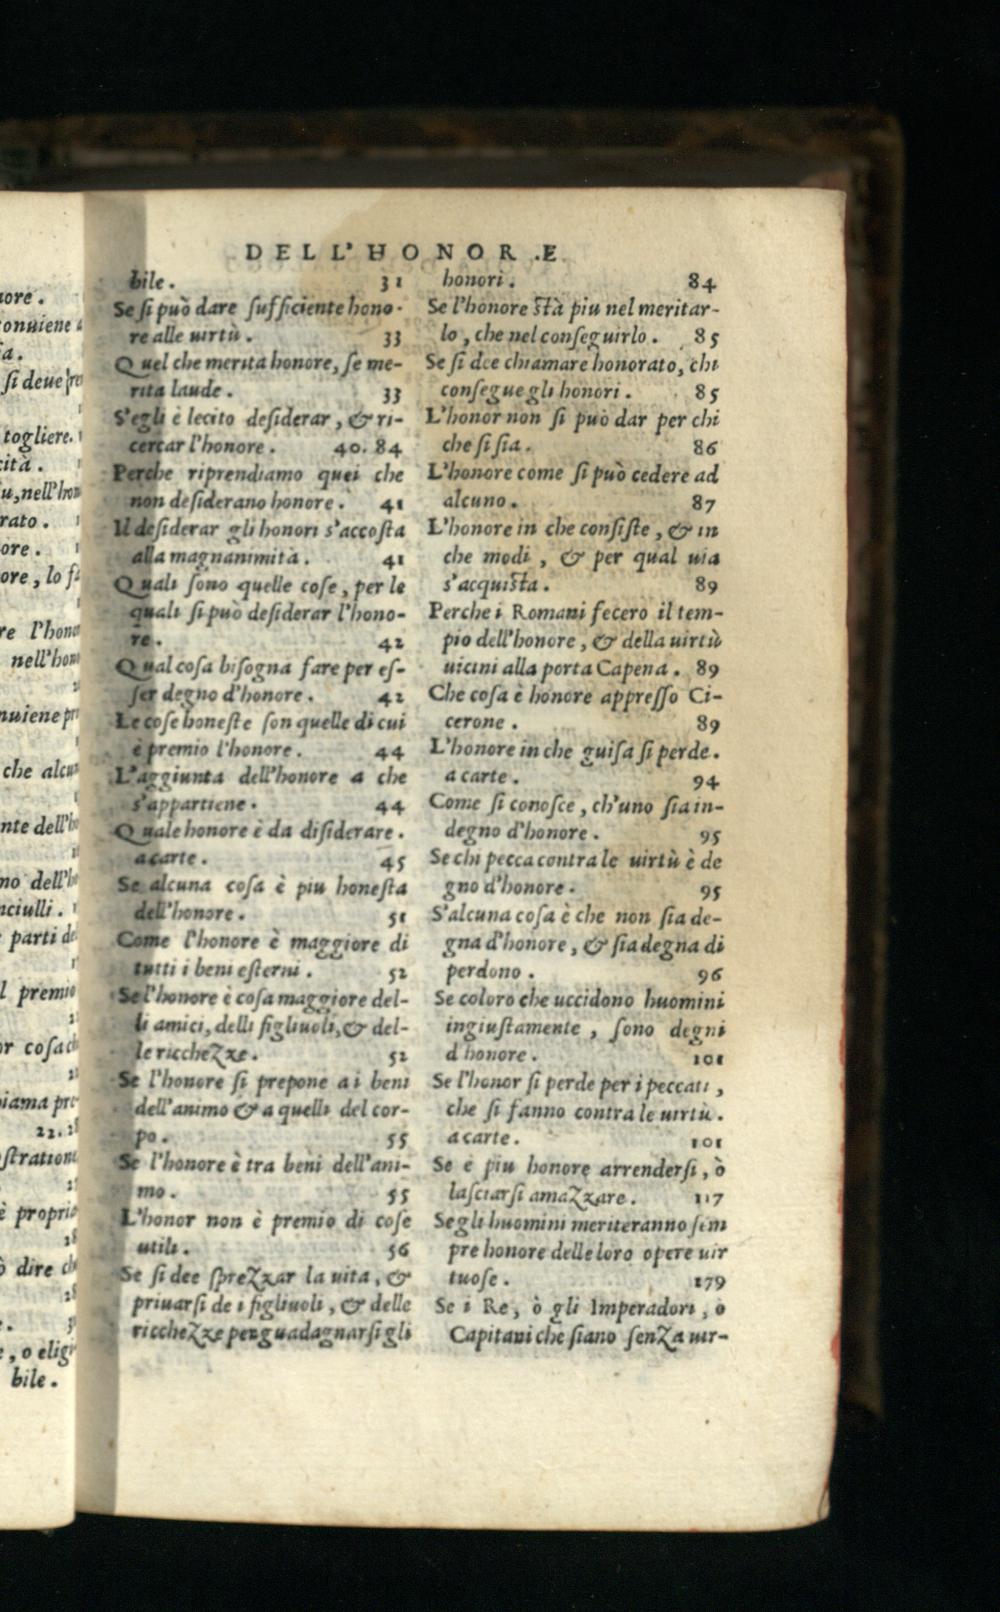 DELL'HONORE
bile. 31
Se si può dare sufficiente hono-
re alle uirtù. 33
Quel che merita honore, se me-
rita laude. 33
S'egli è lecito desiderar, & ri-
cercar l'honore. 40. 84
Perche riprendiamo quei che
non desiderano honore. 41
Il desiderar gli honori s'accosta
alla magnanimità. 41
Quali sono quelle cose, per le
quali si può desiderar l'hono-
re. 42
Qual cosa bisogna fare per es-
ser degno d'honore. 42
Le cose honeste son quelle di cui
è premio l'honore. 44
L'aggiunta dell'honore a che
s'appartiene. 44
Quale honore è da disiderare.
a carte. 45
Se alcuna cosa è piu honesta
dell'honore. 51
Come l'honore è maggiore di
tutti i beni esterni. 52
Se l'honore è cosa maggiore del-
li amici, delli figliuoli, & del-
le ricchezze. 52
Se l'honore si prepone a i beni
dell'animo & a quelli del cor-
po. 55
Se l'honore è tra beni dell'ani-
mo. 55
L'honor non è premio di cose
utili. 56
Se si dee sprezzar la uita, &
priuarsi de i figliuoli, & delle
ricchezze per guadagnarsi gli
honori. 84
Se l'honore stà piu nel meritar-
lo, che nel conseguirlo. 85
Se si dee chiamare honorato, chi
consegue gli honori. 85
L'honor non si può dar per chi
che si sia. 86
L'honore come si può cedere ad
alcuno. 87
L'honore in che consiste, & in
che modi, & per qual uia
s'acquista. 89
Perche i Romani fecero il tem-
pio dell'honore, & della uirtù
uicini alla porta Capena. 89
Che cosa è honore appresso Ci-
cerone. 89
L'honore in che guisa si perde.
a carte. 94
Come si conosce, ch'uno sia in-
degno d'honore. 95
Se chi pecca contra le uirtù è de
gno d'honore. 95
S'alcuna cosa è che non sia de-
gna d'honore, & sia degna di
perdono. 96
Se coloro che uccidono huomini
ingiustamente, sono degni
d honore. 101
Se l'honor si perde per i peccati,
che si fanno contra le uirtù.
a carte. 101
Se è piu honore arrendersi, ò
lasciarsi amazzare. 117
Se gli huomini meriteranno sem
pre honore delle loro opere uir
tuose. 179
Se i Re, ò gli Imperadori, o
Capitani che siano senza uir-
togliere.
cità.
rato.
nell'hon
che alcu
parti de
premio
22. 28
è proprio
dire ch
bile.